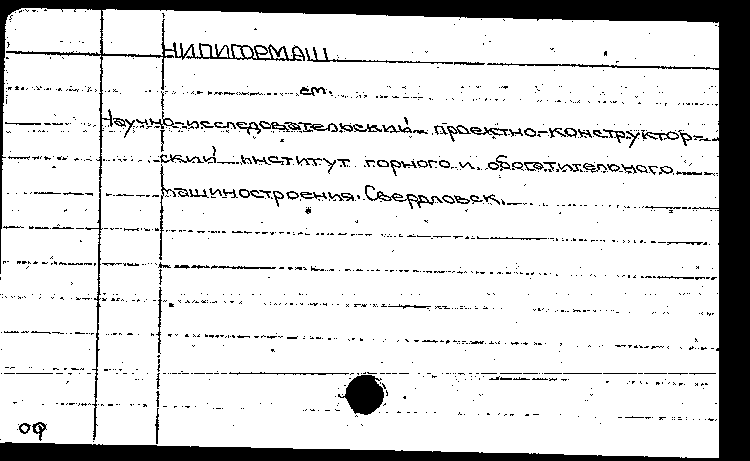 НИПИГОРМАШ
см.
Научно-исследовательский проектно-конструктор-
ский институт горного и обогатительного
машиностроения. Свердловск.
оф